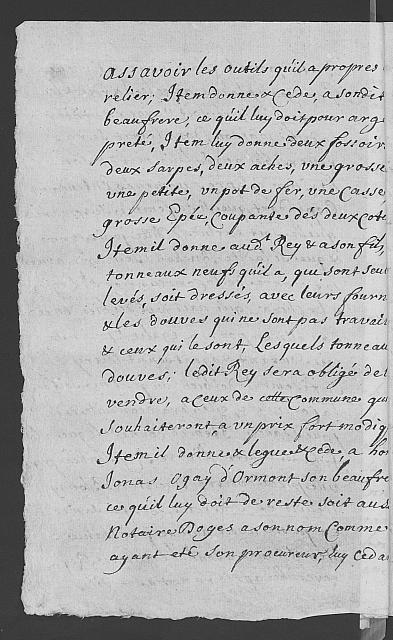 assavoir les outils qu'il a propres
relier; Item donne & cede, a sondit
beaufrere, ce qu'il luy doit pour arg
preté, Item luy donne deux fossoir
deux sarpes, deux aches, une grosse
une petite, un pot de fer, une Casse
grosse Epée, Coupante dés deux Cote
Item il donne aud.t Rey & a son fils,
tonneaux neufs qu'il a, qui sont seu
levés, soit dressés, avec leurs fourn
& les douves qui ne sont pas travail
& ceux qui le sont, Lesquels tonneau
douves; ledit Rey sera obligé de
vendre, a Ceux de cette Commune qu
souhaiteront a un prix fort modiq
Item il donne & legue & cede, a ho
Jonas Ogay d'Ormont son beaufre
ce qu'il luy doit de reste soit au S
Notaire Doges a son nom Comme
ayant eté son procureur, luy ceda